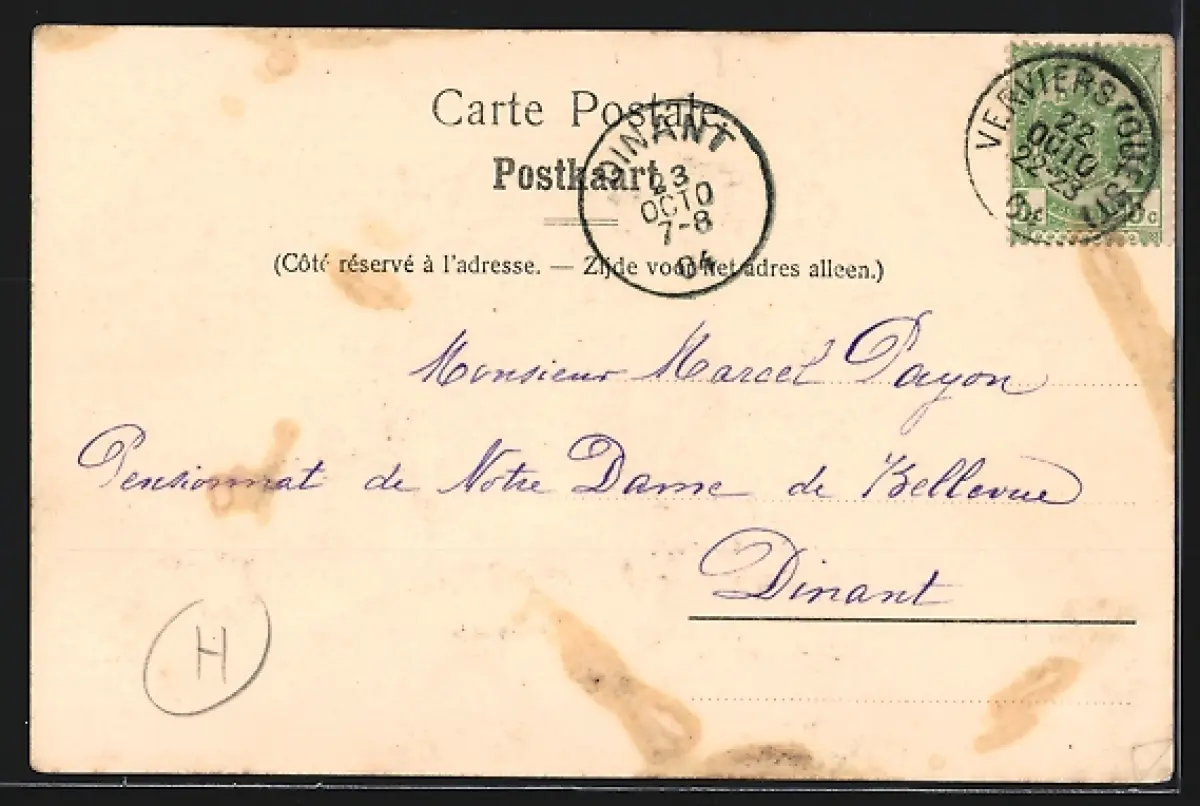 Carte Postale
Postkaart
(Côté réservé à l'adresse. — Zijde voor het adres alleen.)
DINANT
23
OCTO
7-8
04
VERVIERS (OUEST)
22
OCTO
22-23
04
Monsieur Marcel Payon
Pensionnat de Notre Dame de Bellevue
Dinant
H